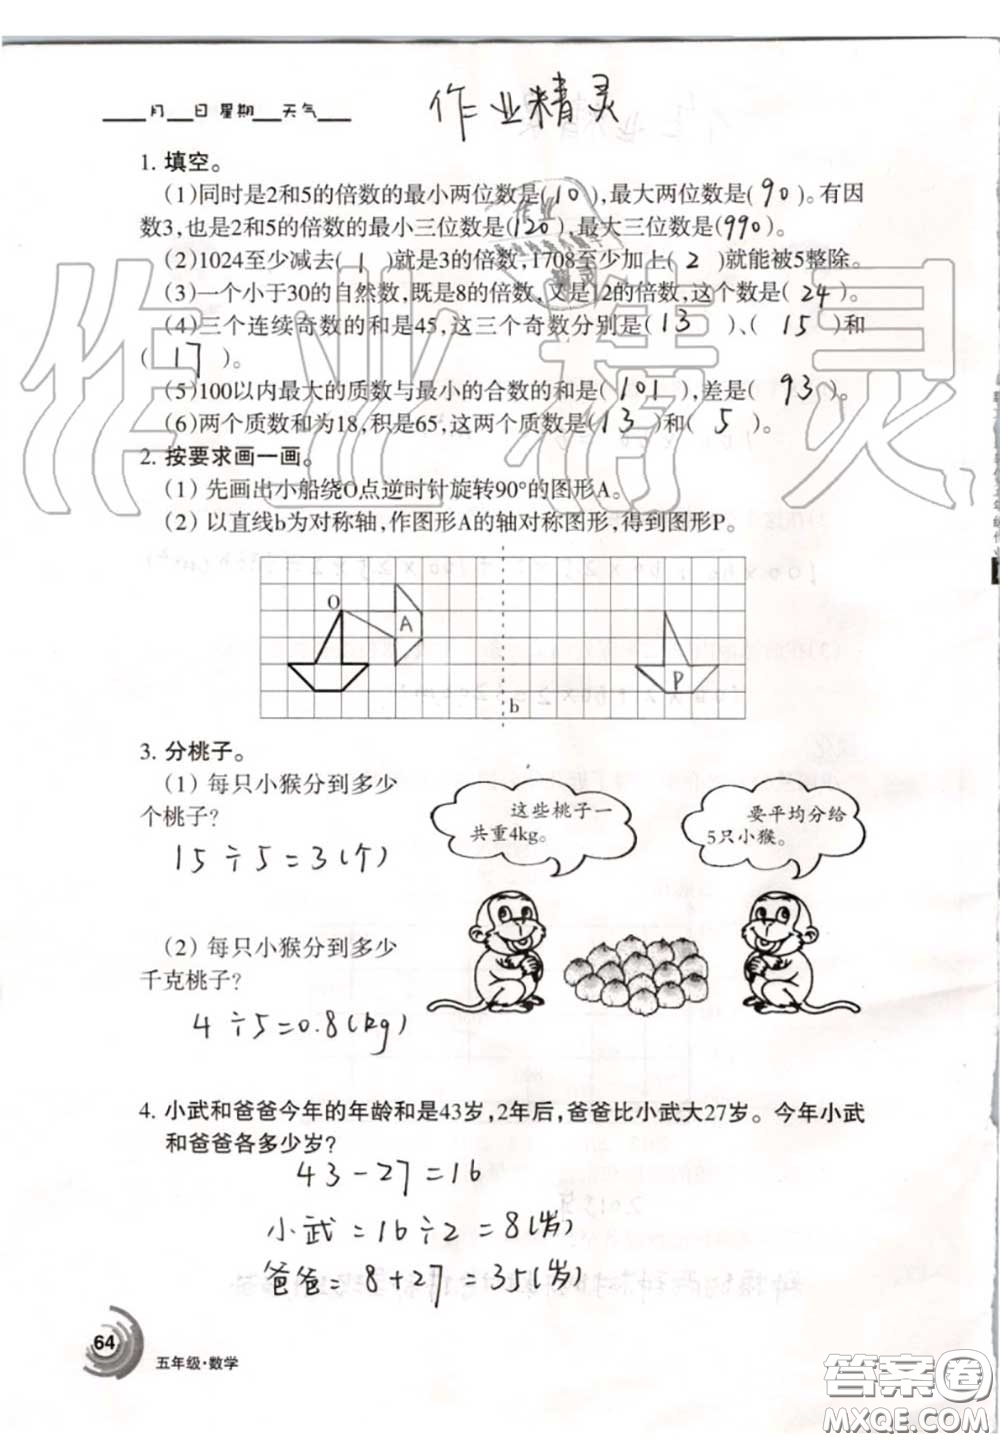 作业精灵
___月__日 星期__天气___
1. 填空。
(1)同时是2和5的倍数的最小两位数是( 10 ),最大两位数是( 90 )。有因
数3,也是2和5的倍数的最小三位数是(120),最大三位数是(990)。
(2)1024至少减去( 1 )就是3的倍数,1708至少加上( 2 )就能被5整除。
(3)一个小于30的自然数,既是8的倍数,又是12的倍数,这个数是( 24 )。
(4)三个连续奇数的和是45,这三个奇数分别是( 13 )、( 15 )和
( 17 )。
(5)100以内最大的质数与最小的合数的和是( 101 ),差是( 93 )。
(6)两个质数和为18,积是65,这两个质数是( 13 )和( 5 )。
2. 按要求画一画。
(1) 先画出小船绕O点逆时针旋转90°的图形A。
(2) 以直线b为对称轴,作图形A的轴对称图形,得到图形P。
O
A
P
b
3. 分桃子。
(1) 每只小猴分到多少
个桃子?
15÷5=3(个)
这些桃子一
共重4kg。
要平均分给
5只小猴。
(2) 每只小猴分到多少
千克桃子?
4÷5=0.8(kg)
4. 小武和爸爸今年的年龄和是43岁,2年后,爸爸比小武大27岁。今年小武
和爸爸各多少岁?
43-27=16
小武=16÷2=8(岁)
爸爸=8+27=35(岁)
64
五年级·数学
作业精灵
答案圈
MXQE.COM